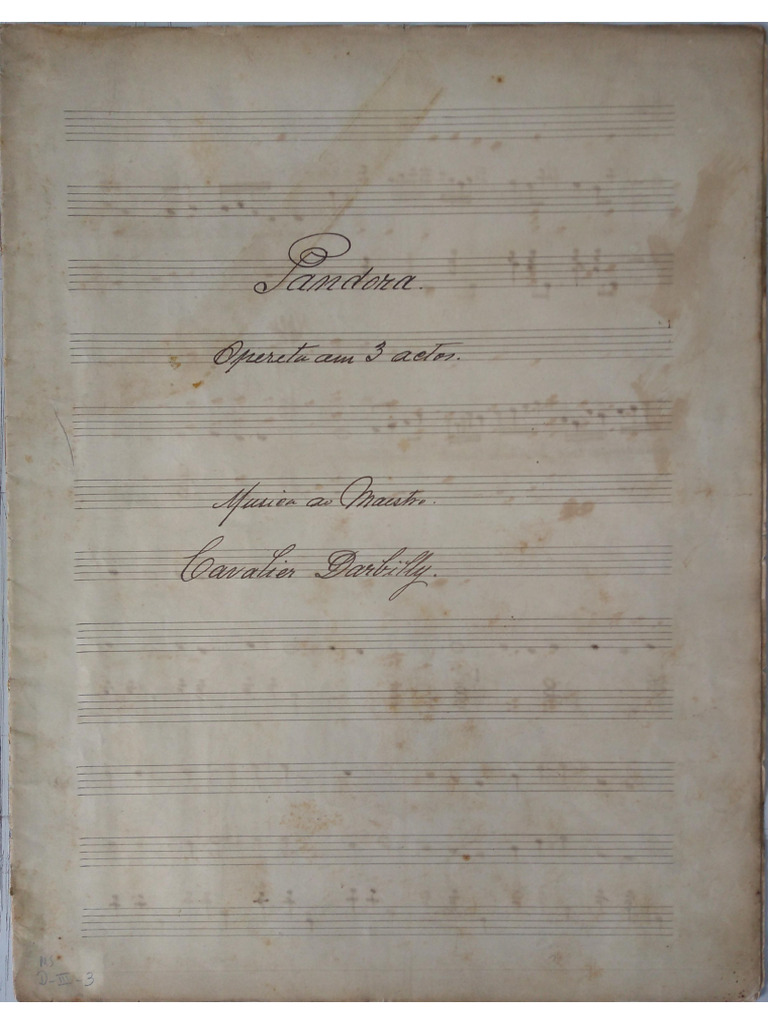 Pandora.
Opereta em 3 actos.
Musica do Maestro.
Cavalier Darbilly.
MS
D-III-3